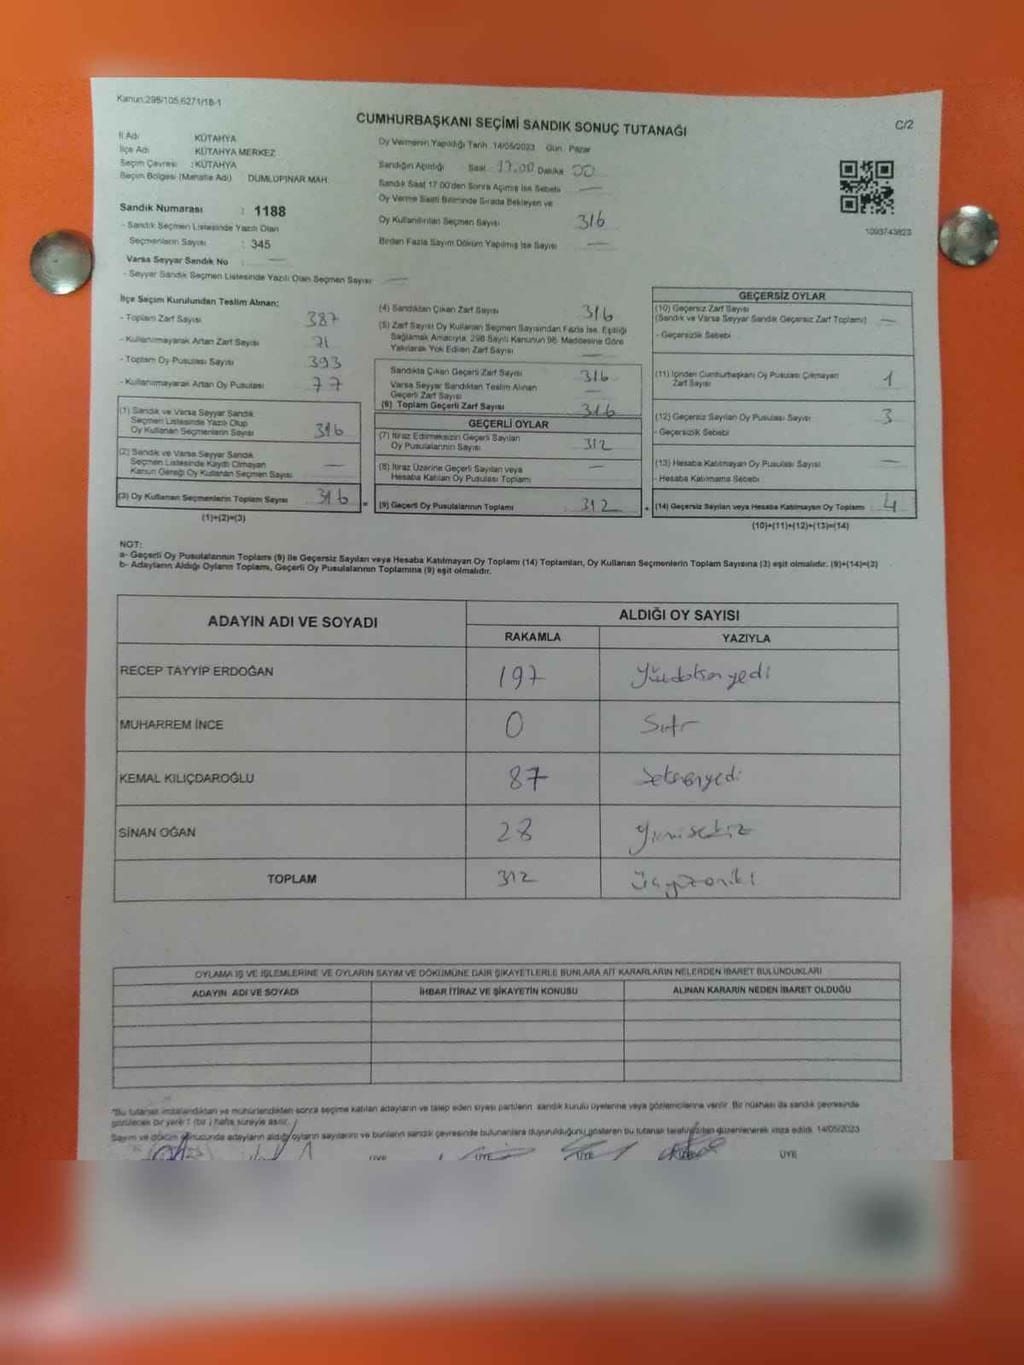 Kanun:298/105,6271/18-1
CUMHURBAŞKANI SEÇİMİ SANDIK SONUÇ TUTANAĞI
C/2
İl Adı KÜTAHYA
İlçe Adı KÜTAHYA MERKEZ
Seçim Çevresi : KÜTAHYA
Seçim Bölgesi (Mahalle Adı) DUMLUPINAR MAH.
Sandık Numarası : 1188
- Sandık Seçmen Listesinde Yazılı Olan
Seçmenlerin Sayısı : 345
Varsa Seyyar Sandık No : —
- Seyyar Sandık Seçmen Listesinde Yazılı Olan Seçmen Sayısı —
Oy Vermenin Yapıldığı Tarih 14/05/2023 Gün Pazar
Sandığın Açıldığı Saat 17.00 Dakika 00
Sandık Saat 17.00'den Sonra Açılmış İse Sebebi —
Oy Verme Saati Bitiminde Sırada Bekleyen ve
Oy Kullandırılan Seçmen Sayısı 316
Birden Fazla Sayım Döküm Yapılmış İse Sayısı —
1093743823
İlçe Seçim Kurulundan Teslim Alınan:
- Toplam Zarf Sayısı 387
- Kullanılmayarak Artan Zarf Sayısı 71
- Toplam Oy Pusulası Sayısı 393
- Kullanılmayarak Artan Oy Pusulası 77
(1) Sandık ve Varsa Seyyar Sandık
Seçmen Listesinde Yazılı Olup
Oy Kullanan Seçmenlerin Sayısı 316
(2) Sandık ve Varsa Seyyar Sandık
Seçmen Listesinde Kaydı Olmayan
Kanun Gereği Oy Kullanan Seçmen Sayısı —
(3) Oy Kullanan Seçmenlerin Toplam Sayısı 316 =
(1)+(2)=(3)
(4) Sandıktan Çıkan Zarf Sayısı 316
(5) Zarf Sayısı Oy Kullanan Seçmen Sayısından Fazla İse, Eşitliği
Sağlamak Amacıyla, 298 Sayılı Kanunun 98. Maddesine Göre
Yakılarak Yok Edilen Zarf Sayısı —
Sandıkta Çıkan Geçerli Zarf Sayısı 316
Varsa Seyyar Sandıktan Teslim Alınan
Geçerli Zarf Sayısı —
(6) Toplam Geçerli Zarf Sayısı 316
GEÇERLİ OYLAR
(7) İtiraz Edilmeksizin Geçerli Sayılan
Oy Pusulalarının Sayısı 312
(8) İtiraz Üzerine Geçerli Sayılan veya
Hesaba Katılan Oy Pusulası Toplamı —
(9) Geçerli Oy Pusulalarının Toplamı 312 +
GEÇERSİZ OYLAR
(10) Geçersiz Zarf Sayısı
(Sandık ve Varsa Seyyar Sandık Geçersiz Zarf Toplamı) —
- Geçersizlik Sebebi
(11) İçinden Cumhurbaşkanı Oy Pusulası Çıkmayan
Zarf Sayısı 1
(12) Geçersiz Sayılan Oy Pusulası Sayısı 3
- Geçersizlik Sebebi
(13) Hesaba Katılmayan Oy Pusulası Sayısı —
- Hesaba Katılmama Sebebi
(14) Geçersiz Sayılan veya Hesaba Katılmayan Oy Toplamı : 4
(10)+(11)+(12)+(13)=(14)
NOT:
a- Geçerli Oy Pusulalarının Toplamı (9) ile Geçersiz Sayılan veya Hesaba Katılmayan Oy Toplamı (14) Toplamları, Oy Kullanan Seçmenlerin Toplam Sayısına (3) eşit olmalıdır. (9)+(14)=(3)
b- Adayların Aldığı Oyların Toplamı, Geçerli Oy Pusulalarının Toplamına (9) eşit olmalıdır.
ADAYIN ADI VE SOYADI
ALDIĞI OY SAYISI
RAKAMLA YAZIYLA
RECEP TAYYİP ERDOĞAN 197 Yüzdoksanyedi
MUHARREM İNCE 0 Sıfır
KEMAL KILIÇDAROĞLU 87 Seksenyedi
SİNAN OĞAN 28 Yirmisekiz
TOPLAM 312 Üçyüzoniki
OYLAMA İŞ VE İŞLEMLERİNE VE OYLARIN SAYIM VE DÖKÜMÜNE DAİR ŞİKAYETLERLE BUNLARA AİT KARARLARIN NELERDEN İBARET BULUNDUKLARI
ADAYIN ADI VE SOYADI İHBAR İTİRAZ VE ŞİKAYETİN KONUSU ALINAN KARARIN NEDEN İBARET OLDUĞU
*Bu tutanak imzalandıktan ve mühürlendikten sonra seçime katılan adayların ve talep eden siyasi partilerin sandık kurulu üyelerine veya gözlemcilerine verilir. Bir nüshası da sandık çevresinde
görülecek bir yere 1 (bir) hafta süreyle asılır.
Sayım ve döküm sonucunda adayların aldığı oyların sayılarını ve bunların sandık çevresinde bulunanlara duyurulduğunu gösteren bu tutanak tarafımızdan düzenlenerek imza edildi. 14/05/2023
ÜYE ÜYE ÜYE ÜYE ÜYE